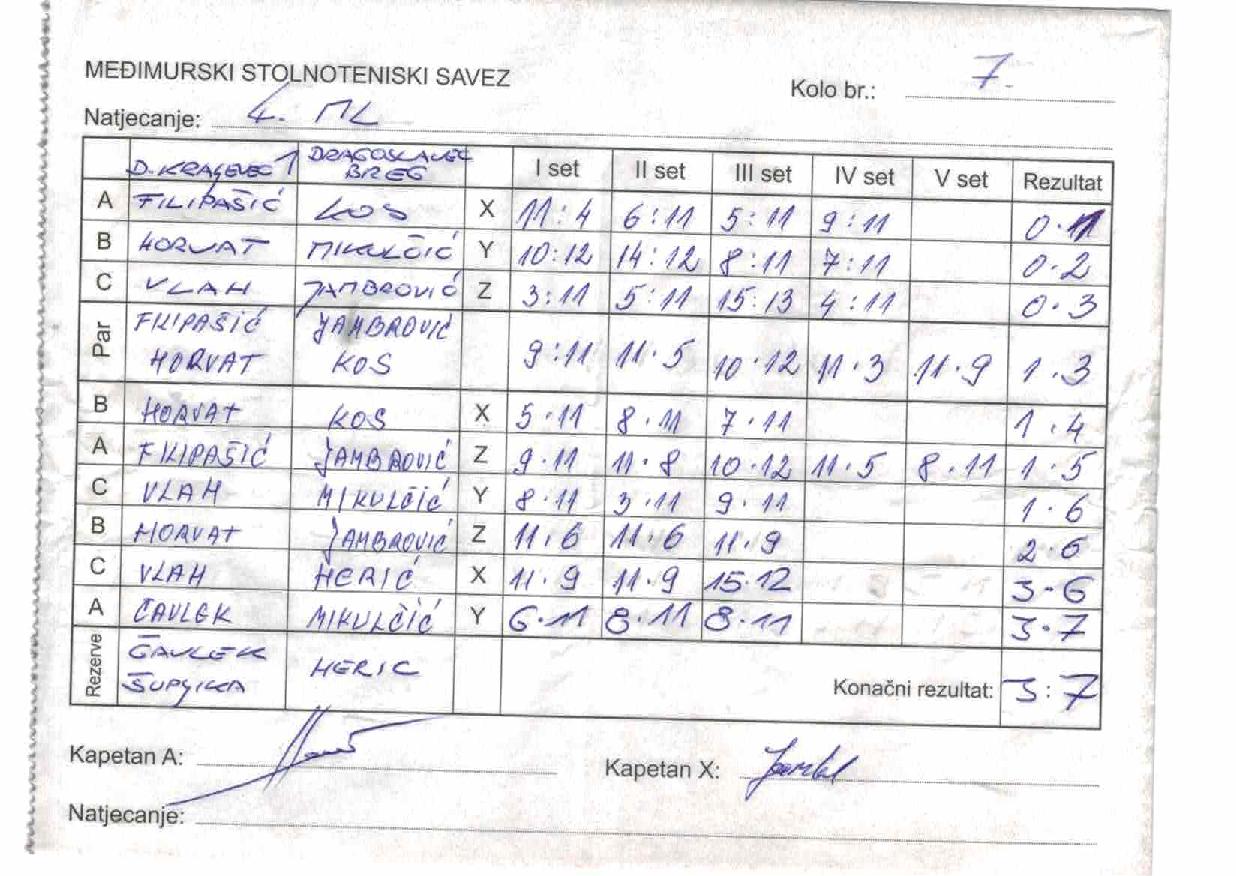 MEĐIMURSKI STOLNOTENISKI SAVEZ
Kolo br.: 7.
Natjecanje: 4. ML
D. KRALJEVEC 1 DRAGOSLAVEC BREG I set II set III set IV set V set Rezultat
A FILIPAŠIĆ KOS X 11:4 6:11 5:11 9:11 0.1
B HORVAT MIKULČIĆ Y 10:12 14:12 8:11 7:11 0.2
C VLAH JAMBROVIĆ Z 3:11 5:11 15:13 4:11 0.3
Par FILIPAŠIĆ JAMBROVIĆ
HORVAT KOS 9:11 11.5 10.12 11.3 11.9 1.3
B HORVAT KOS X 5.11 8.11 7.11 1.4
A FILIPAŠIĆ JAMBROVIĆ Z 9.11 11.8 10.12 11.5 8.11 1.5
C VLAH MIKULČIĆ Y 8.11 3.11 9.11 1.6
B HORVAT JAMBROVIĆ Z 11.6 11.6 11.9 2.6
C VLAH HERIĆ X 11.9 11.9 15.12 3.6
A ČAVLEK MIKULČIĆ Y 6.11 8.11 8.11 3.7
Rezerve ČAVLEK HERIC
Konačni rezultat: 3:7
Kapetan A:
Kapetan X:
Natjecanje: